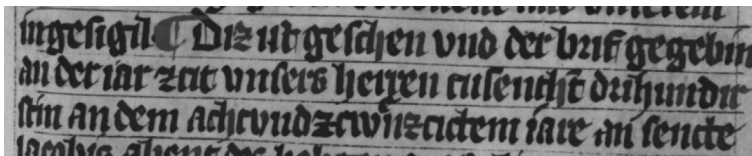 ingesigil ¶ Diz ist geschen vnd der brif gegebin
an der iar zcit vnsers herren tusencht drihundir
stin an dem achtvndzcwenzcictem iare an sencte
iacobis abent des